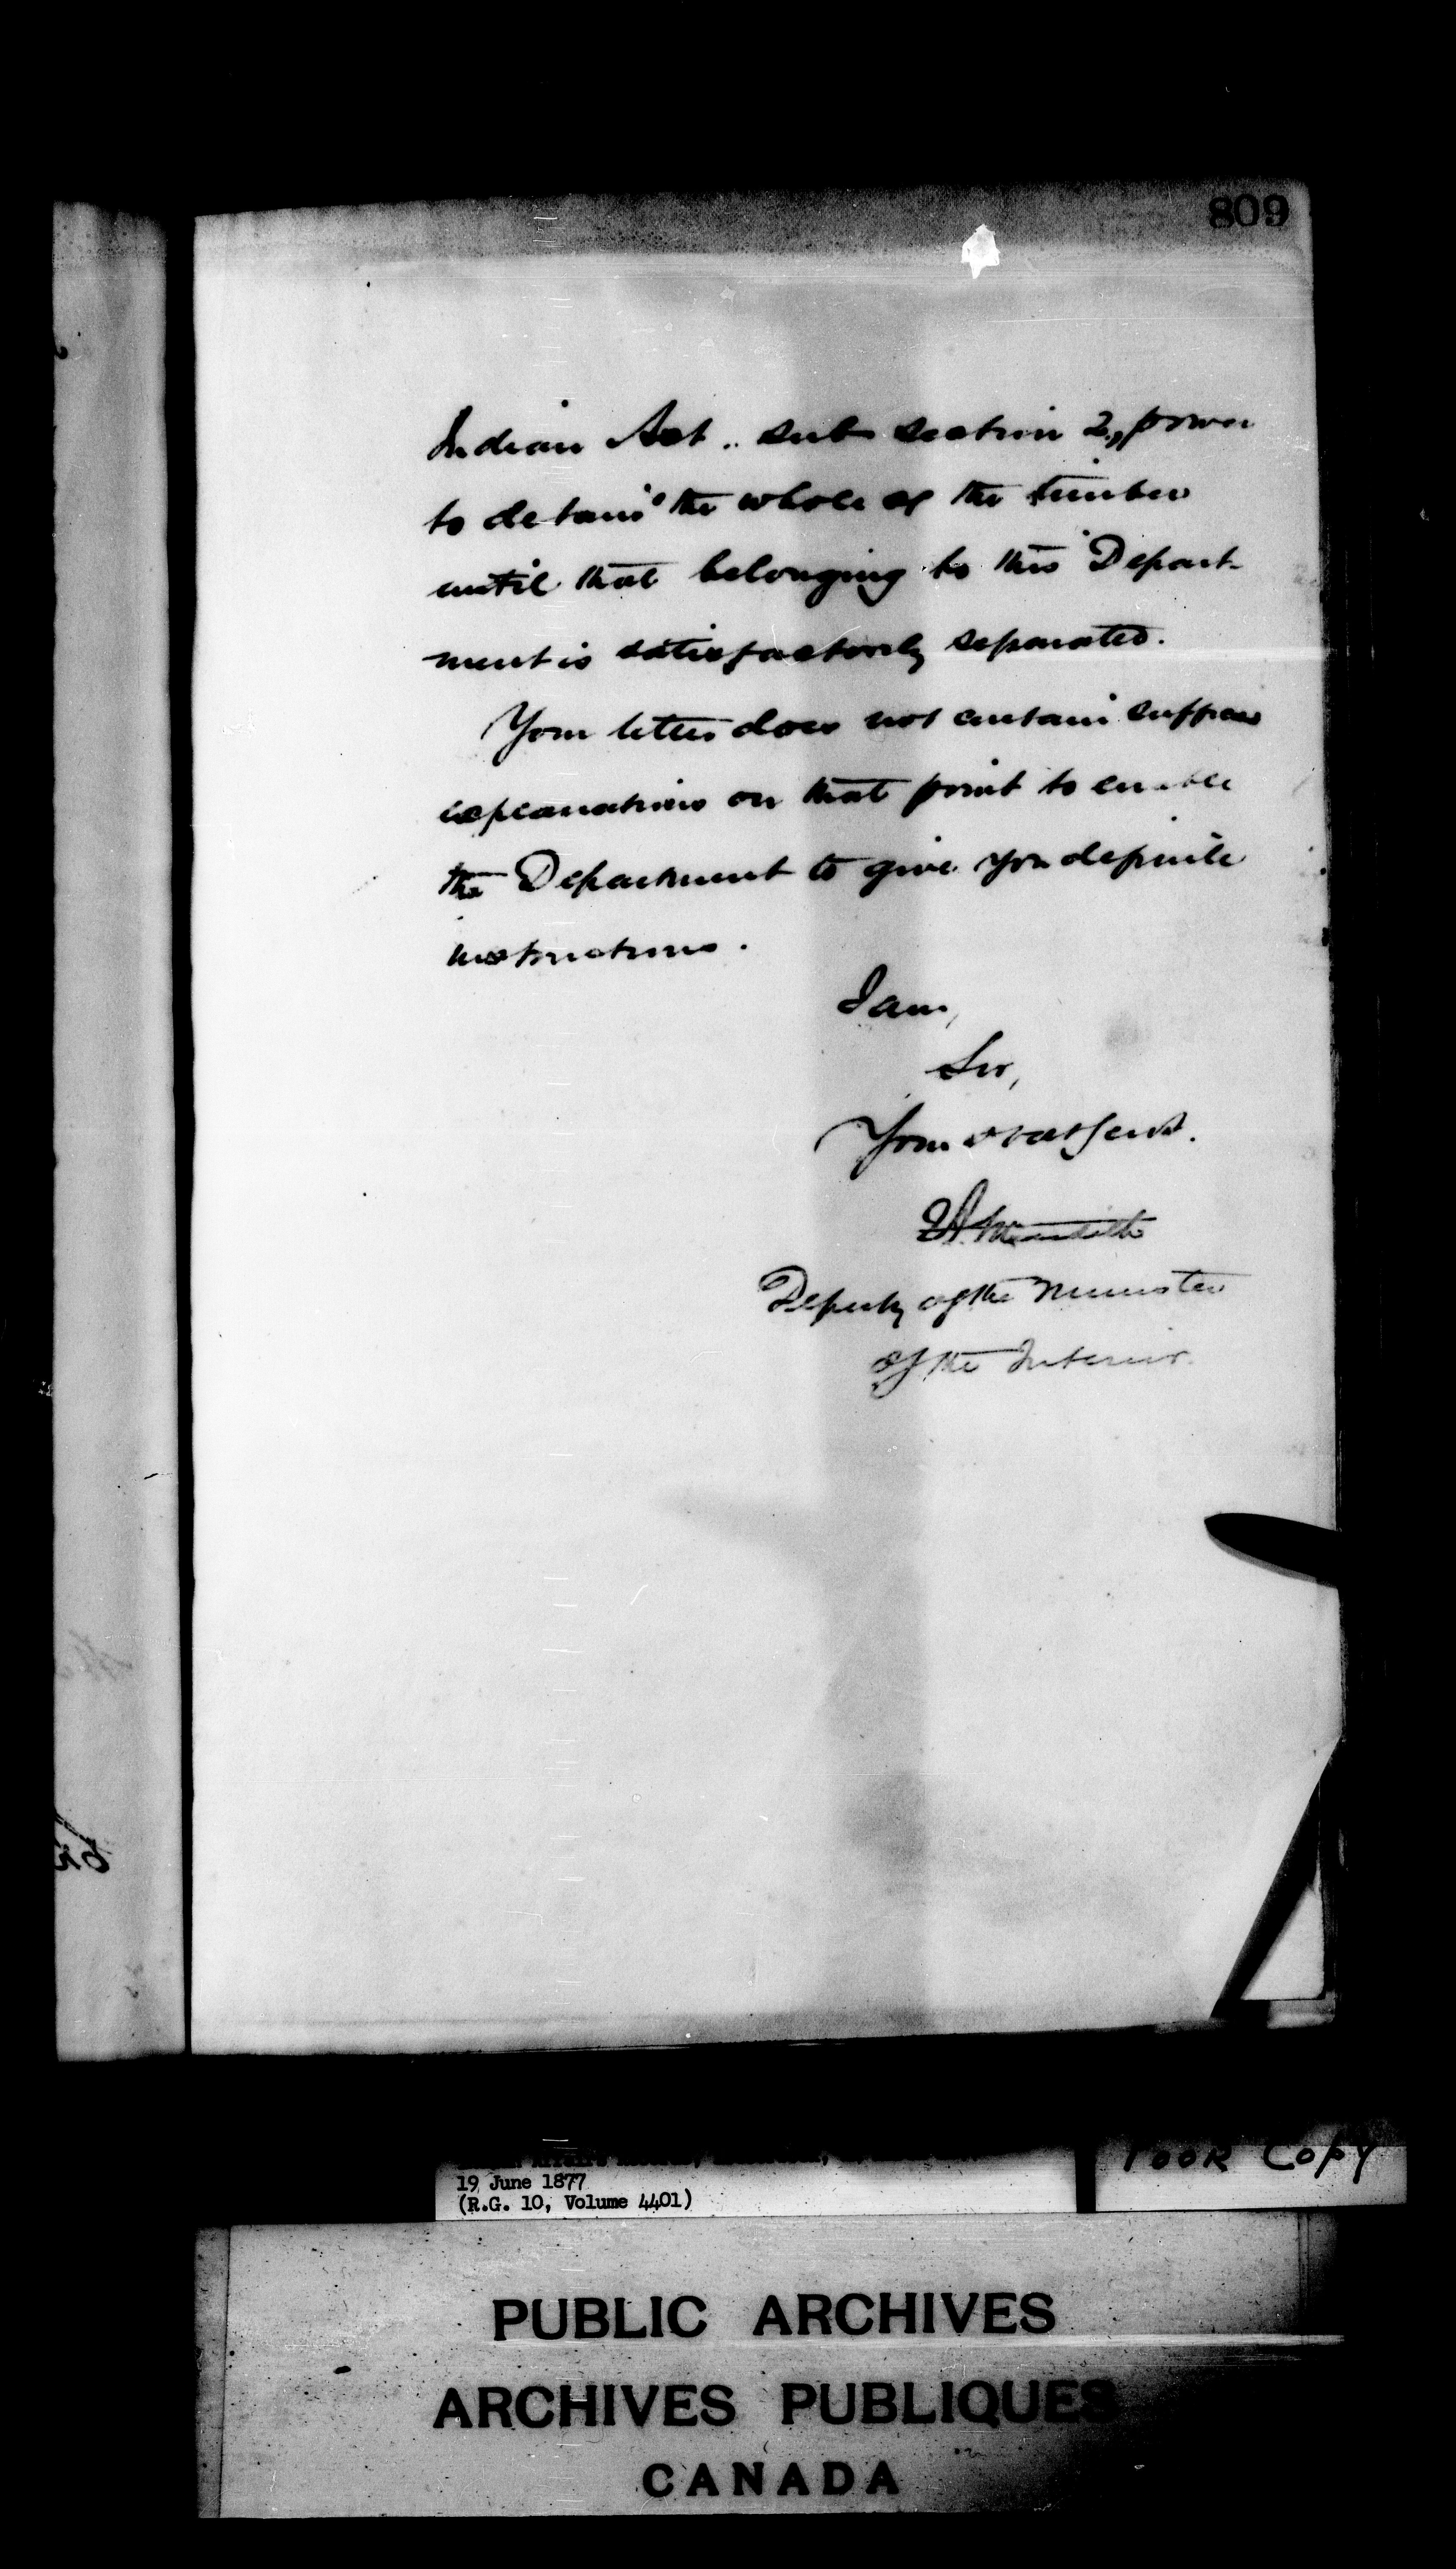 809
Indian Act. sub section 2, power
to detain the whole of the timber
until that belonging to this Depart-
ment is satisfactorily separated.
Your letter does not contain
explanations on that point to enable
the Department to give you definite
instructions.
I am,
Sir,
Your obdt Servt.
E A Meredith
Deputy of the Minister
of the Interior.
19 June 1877
(R.G. 10, Volume 4401)
Took Copy
PUBLIC ARCHIVES
ARCHIVES PUBLIQUES
CANADA